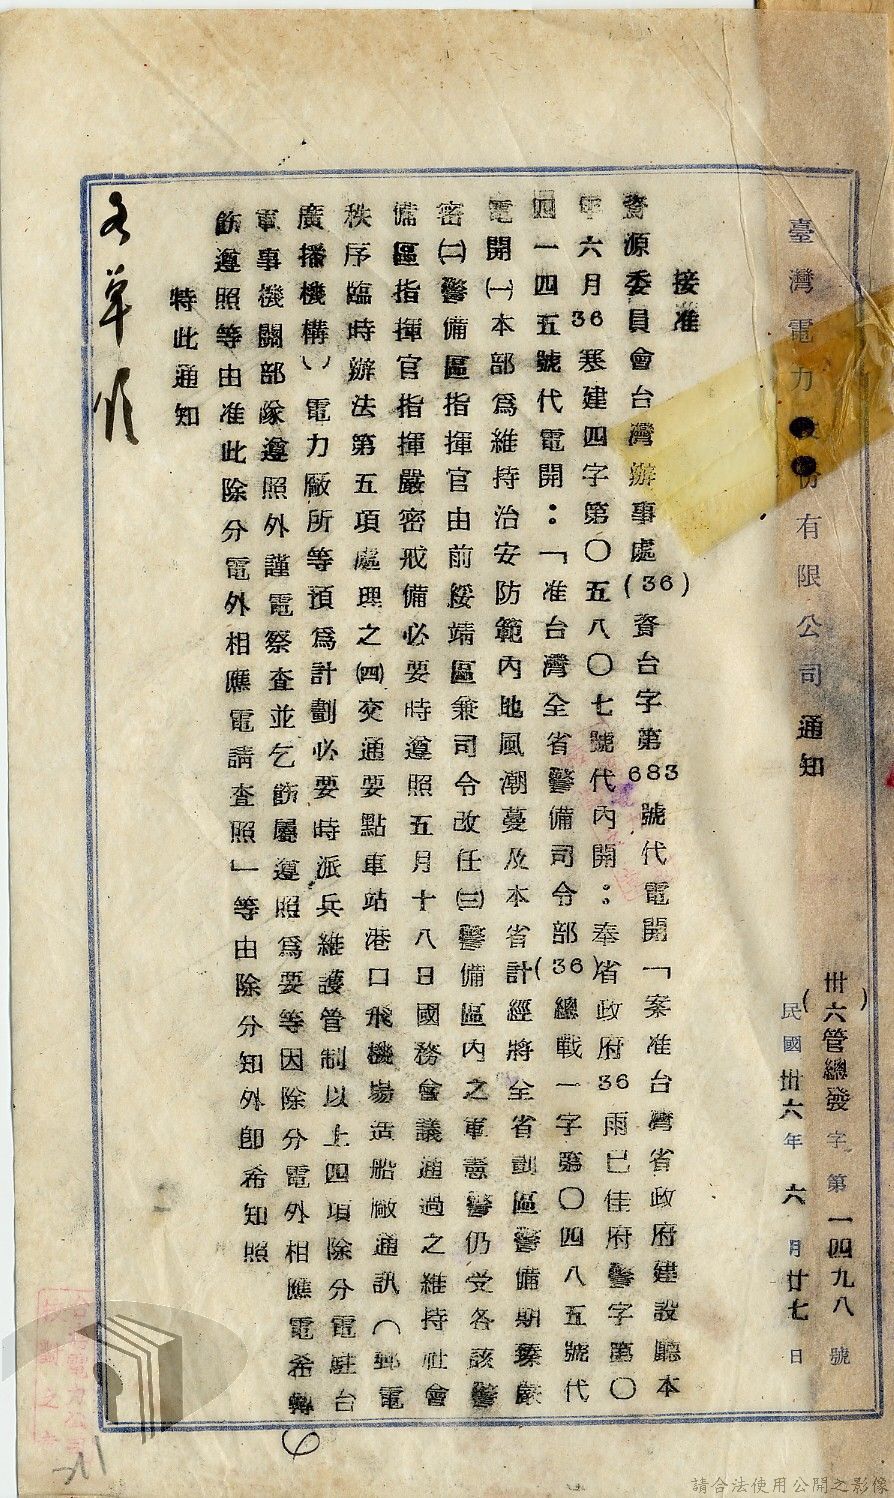 臺灣電力股份有限公司通知
(卅六)管總發字第一四九八號
民國卅六年六月廿七日
接准
資源委員會台灣辦事處(36)資台字第683號代電開「案准台灣省政府建設廳本
年六月36寒建四字第〇五八〇七號代內開:奉省政府36雨已佳府警字第〇
四一四五號代電開:「准台灣全省警備司令部(36)總戰一字第〇四八五號代
電開㈠本部爲維持治安防範內地風潮蔓及本省計經將全省劃區警備期臻嚴
密㈡警備區指揮官由前綏靖區兼司令改任㈢警備區內之軍憲警仍受各該警
備區指揮官指揮嚴密戒備必要時遵照五月十八日國務會議通過之維持社會
秩序臨時辦法第五項處理之㈣交通要點車站港口飛機場造船廠通訊(郵電
廣播機構)電力廠所等預爲計劃必要時派兵維護管制以上四項除分電駐台
軍事機關部隊遵照外謹電察查並乞飭屬遵照爲要等因除分電外相應電希轉
飭遵照等由准此除分電外相應電請查照」等由除分知外卽希知照
特此通知
請合法使用公開之影像